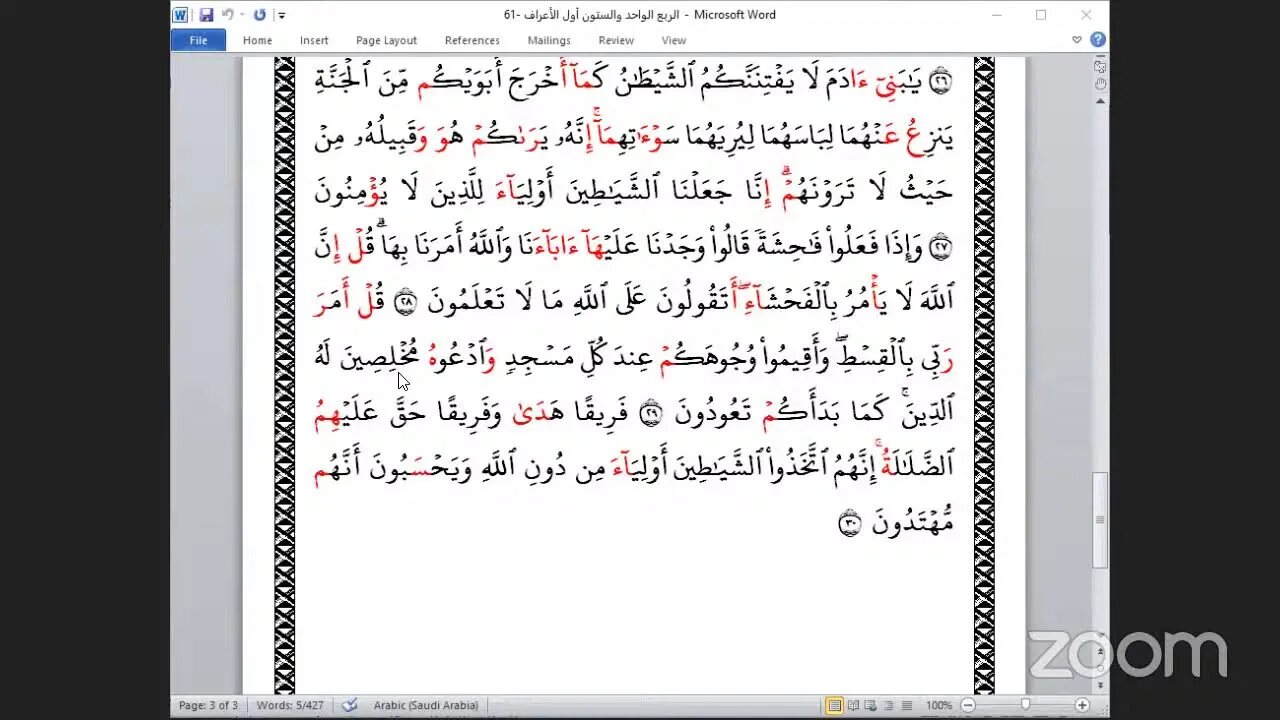 الربع الواحد والستون أول الأعراف -61 - Microsoft Word
File Home Insert Page Layout References Mailings Review View
٢٦ يَٰبَنِيٓ ءَادَمَ لَا يَفۡتِنَنَّكُمُ ٱلشَّيۡطَٰنُ كَمَآ أَخۡرَجَ أَبَوَيۡكُم مِّنَ ٱلۡجَنَّةِ
يَنزِعُ عَنۡهُمَا لِبَاسَهُمَا لِيُرِيَهُمَا سَوۡءَٰتِهِمَآۚ إِنَّهُۥ يَرَىٰكُمۡ هُوَ وَقَبِيلُهُۥ مِنۡ
حَيۡثُ لَا تَرَوۡنَهُمۡۗ إِنَّا جَعَلۡنَا ٱلشَّيَٰطِينَ أَوۡلِيَآءَ لِلَّذِينَ لَا يُؤۡمِنُونَ
٢٧ وَإِذَا فَعَلُواْ فَٰحِشَةٗ قَالُواْ وَجَدۡنَا عَلَيۡهَآ ءَابَآءَنَا وَٱللَّهُ أَمَرَنَا بِهَاۗ قُلۡ إِنَّ
ٱللَّهَ لَا يَأۡمُرُ بِٱلۡفَحۡشَآءِۖ أَتَقُولُونَ عَلَى ٱللَّهِ مَا لَا تَعۡلَمُونَ ٢٨ قُلۡ أَمَرَ
رَبِّي بِٱلۡقِسۡطِۖ وَأَقِيمُواْ وُجُوهَكُمۡ عِندَ كُلِّ مَسۡجِدٖ وَٱدۡعُوهُ مُخۡلِصِينَ لَهُ
ٱلدِّينَۚ كَمَا بَدَأَكُمۡ تَعُودُونَ ٢٩ فَرِيقًا هَدَىٰ وَفَرِيقًا حَقَّ عَلَيۡهِمُ
ٱلضَّلَٰلَةُۚ إِنَّهُمُ ٱتَّخَذُواْ ٱلشَّيَٰطِينَ أَوۡلِيَآءَ مِن دُونِ ٱللَّهِ وَيَحۡسَبُونَ أَنَّهُم
مُّهۡتَدُونَ ٣٠
zoom
Page: 3 of 3 Words: 5/427 Arabic (Saudi Arabia) 100%